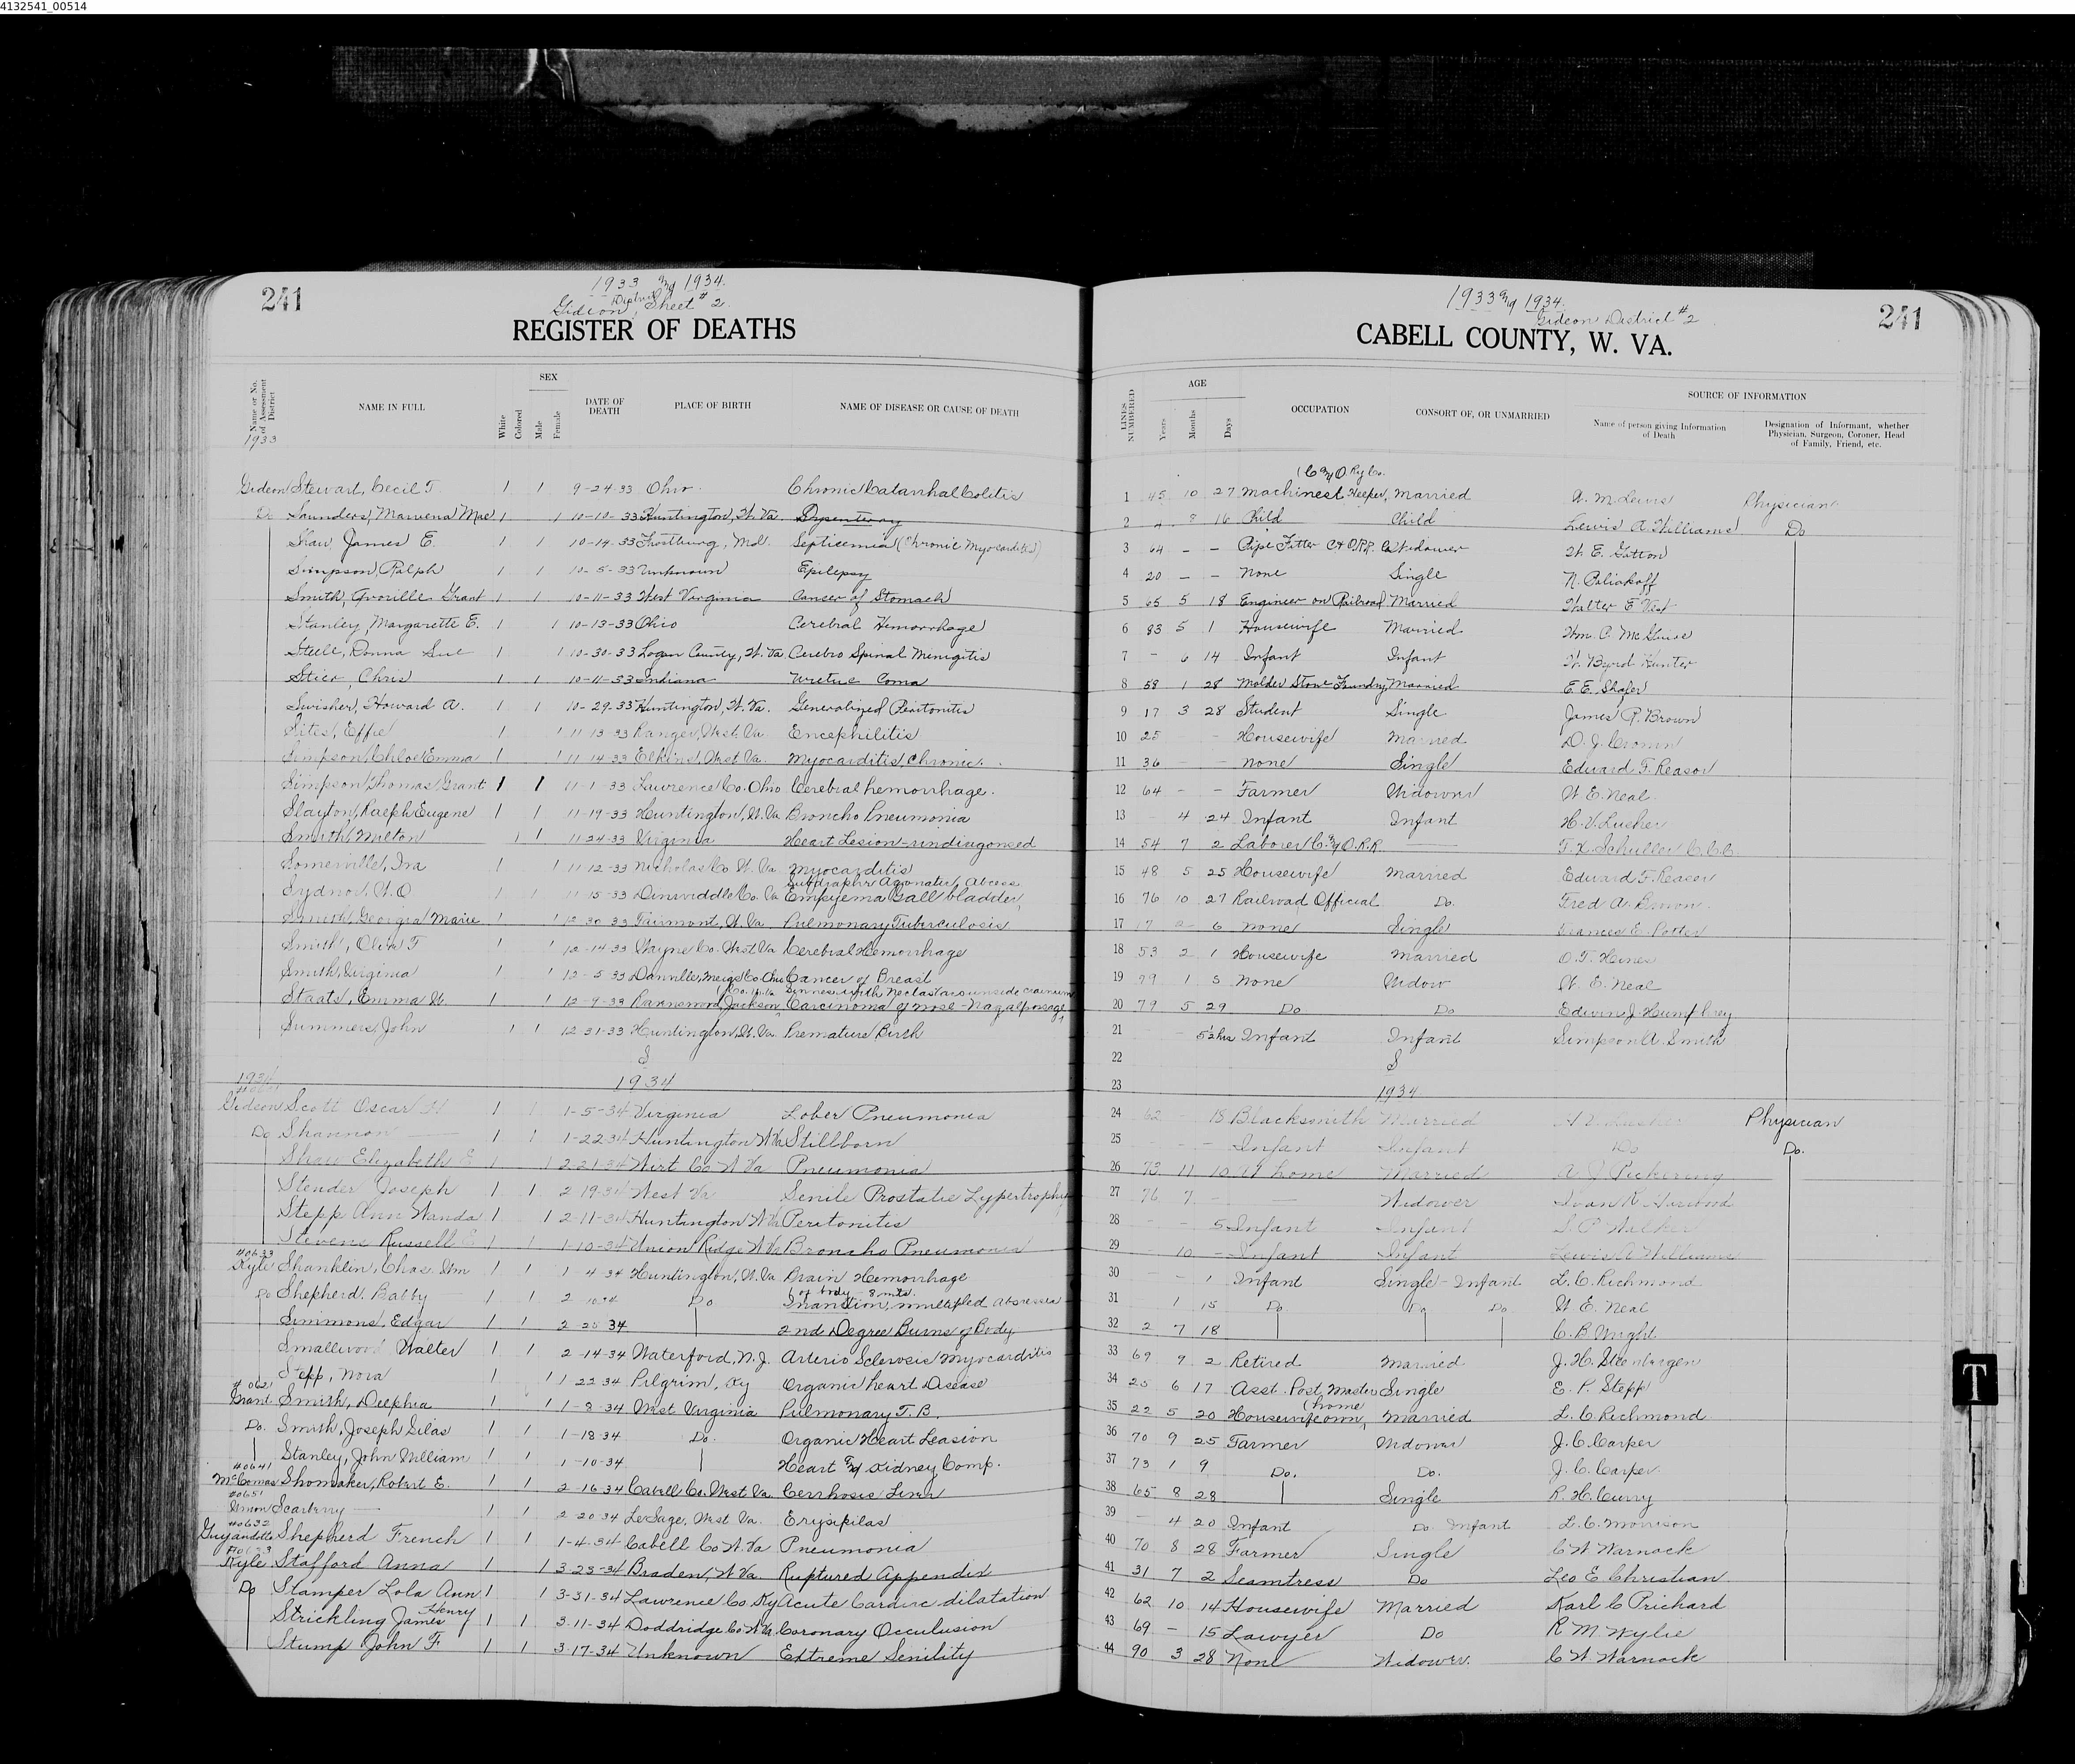 4132541_00514
241
1933 and 1934.
Gideon District, Sheet #2.
REGISTER OF DEATHS
Name or No. of Assessment District
NAME IN FULL
White
Colored
SEX
Male
Female
DATE OF DEATH
PLACE OF BIRTH
NAME OF DISEASE OR CAUSE OF DEATH
1933
Gideon Stewart, Cecil T. 1 1 9-24-33 Ohio Chronic Catarrhal Colitis
Do Saunders, Marvena Mae 1 1 10-10-33 Huntington, W. Va. Dysentery
Shaw James E. 1 1 10-14-33 Frostburg, Md. Septicemia (Chronic Myocarditis)
Simpson, Ralph 1 1 10-5-33 Unknown Epilepsy
Smith, Grant 1 1 10-11-33 West Virginia Cancer of Stomach
Stanley, Margarette E. 1 1 10-13-33 Ohio Cerebral Hemorrhage
Steele, Donna Sue 1 1 10-30-33 Logan County, W. Va. Cerebro Spinal Menigitis
Stier, Chris 1 1 10-11-33 Indiana Coma
Swisher, Howard A. 1 1 10-29-33 Huntington, W. Va. Generalized Peritonitis
Sites, Effie 1 1 11-13-33 Ranger, West Va. Encephilitis
Simpson, Chloe Emma 1 1 11-14-33 Elkins, West Va. Myocarditis, Chronic.
Simpson, Thomas Grant 1 1 11-1-33 Lawrence Co. Ohio Cerebral hemorrhage.
Slayton, Ralph Eugene 1 1 11-19-33 Huntington, W. Va. Broncho Pneumonia
Smith, Milton 1 1 11-24-33 Virginia Heart Lesion-undiagonsed
Somerville, Ira 1 1 11-12-33 Nicholas Co. W. Va. Myocarditis
Sydnor, W. O 1 1 11-15-33 Dinwiddle Co. Va. Abcess Empyema Gall bladder,
Smith, Georgia Marie 1 1 12-30-33 Fairmont, W. Va. Pulmonary Tuberculosis
Smith, T 1 1 12-14-33 Wayne Co. West Va. Cerebral Hemorrhage
Smith, Virginia 1 1 12-5-33 Danville, Meigs Co. Ohio Cancer of Breast
Staats, Emma W. 1 1 12-9-33 Jackson Carcinoma of nose
Summers, John 1 1 12-31-33 Huntington, W. Va. Premature Birth
S
1934
1934
Gideon Scott Oscar 1 1 1-5-34 Virginia Lober Pneumonia
Do Shannon 1 1 1-22-34 Huntington W Va Stillborn
Shaw Elizabeth E 1 1 2-21-34 Wirt Co W Va Pneumonia
Stender Joseph 1 1 2-19-34 West Va Senile Prostatic Lypertrophy
Stepp Ann Wanda 1 1 2-11-34 Huntington W Va Peritonitis
Stevens Russell E 1 1 1-10-34 Union Ridge W Va Broncho Pneumonia
#0633
Kyle Shanklin, Chas. Wm 1 1 1-4-34 Huntington, W. Va. Brain Hemorrhage
Do Shepherd, Babby 1 1 2-10-34 Do Inanition, multipled absesses of body 8 mts.
Simmons, Edgar 1 1 2-25-34 2nd Degree Burns of Body
Smallwood Walter 1 1 2-14-34 Waterford, N. J. Arterio Sclerosis Myocarditis
Stepp, Nova 1 1-22-34 Pilgrim, Ky Organic heart Disease
#0621
Grant Smith, Delphia 1 1-8-34 West Virginia Pulmonary T. B.
Do. Smith, Joseph Silas 1 1 1-18-34 Do. Organic Heart Leasion
Stanley, John William 1 1 1-10-34 Heart and Kidney Comp.
#0641
McComas Shomaker, Robert E. 1 1 2-16-34 Cabell Co. West Va. Cerrhosis Liver
#0651
Union Scarberry 1 1 2-20-34 LeSage, West Va. Erysipilas
#0632
Guyandotte Shepherd French 1 1 1-4-34 Cabell Co W. Va Pneumonia
Kyle Stafford Anna 1 1 3-23-34 Braden, W Va. Ruptured Appendix
Do Stamper Lola Ann 1 1 3-31-34 Lawrence Co. Ky Acute Cardiac dilatation
Strickling James Henry 1 1 3-11-34 Doddridge Co W Va. Coronary Occulusion
Stump John F 1 1 3-17-34 Unknown Extreme Senility
241
1933 and 1934.
Gideon District #2
CABELL COUNTY, W. VA.
LINES NUMBERED
AGE
Years
Months
Days
OCCUPATION
CONSORT OF, OR UNMARRIED
SOURCE OF INFORMATION
Name of person giving Information of Death
Designation of Informant, whether Physician, Surgeon, Coroner, Head of Family, Friend, etc.
(C and O Ry Co.
1 45 10 27 Machinest Helper, Married A. M. Lewis Physician
2 - 8 16 Child Child Lewis A. Williams Do
3 64 - - Pipe Fitter C & O R.R. Co. Widower W. E. Gatton
4 20 - - None Single N. Poliakoff
5 65 5 18 Engineer on Railroad Married Walter E Vest
6 83 5 1 Housewife Married Wm. C. McGuire
7 - 6 14 Infant Infant W. Byrd Hunter
8 58 1 28 Molder Stove Foundry, Married E. E. Shafer
9 17 3 28 Student Single James R. Brown
10 25 - Housewife Married D. J. Cronin
11 36 None Single Edward F. Reaser
12 64 - - Farmer Widower W. E. Neal
13 4 24 Infant Infant H. V. Lusher
14 54 7 2 Laborer C. and O. R.R.
15 48 5 25 Housewife Married Edward F. Reaser
16 76 10 27 Railroad Official Do. Fred A. Brown
17 17 2 6 None Single Frances E. Potter
18 53 2 1 Housewife Married O. T. Hines
19 79 1 5 None Widow W. E. Neal
20 79 5 29 Do. Do Edwin J. Humphrey
21 - 5½ hrs Infant Infant Simpson A. Smith
22 S
23 1934
24 62 - 18 Blacksmith Married Physician
25 - - - Infant Infant Do Do.
26 73 11 10 At home Married A. J. Pickering
27 76 7 - Widower Ivan R. Harwood
28 - - 5 Infant Infant
29 10 - Infant Infant Lewis A Williams
30 - - 1 Infant Single - Infant L. C. Richmond
31 1 15 Do. Do Do. W E. Neal
32 2 7 18 C. B. Wright
33 69 9 2 Retired Married J. H. Steenbergen
34 25 6 17 Asst. Post Master Single E. P. Stepp
35 22 5 20 Housewife own (home, Married L. C. Richmond
36 70 9 25 Farmer Widower J. C. Carper
37 73 1 9 Do. Do. J. C. Carper.
38 65 8 28 Single R. H. Curry
39 - 4 20 Infant Do. Infant L. C. Morrison
40 70 8 28 Farmer Single C W Warnock
41 31 7 2 Seamtress Do Leo E Christian
42 62 10 14 Housewife Married Karl C Prichard
43 69 - 15 Lawyer Do R M. Wylie
44 90 3 28 None Widower. C W Warnock
T